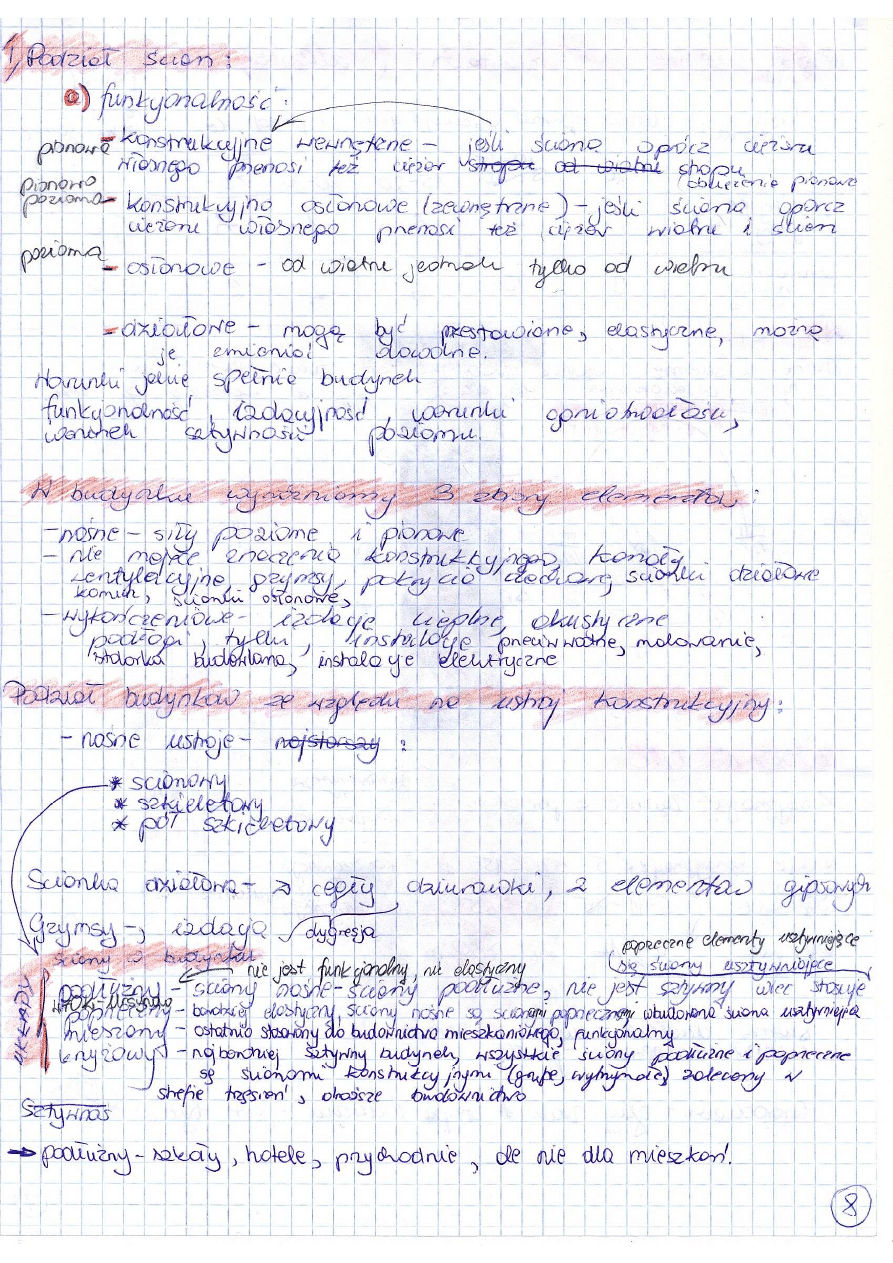 1) Podział ścian:
a) funkcjonalność:
pionowe - konstrukcyjne wewnętrzne - jeśli ściana oprócz ciężaru
własnego przenosi też ciężar stropu od wiatru stropu
obciążenie pionowe
pionowo
poziome - konstrukcyjno osłonowe (zewnętrzne) - jeśli ściana oprócz
ciężaru własnego przenosi też ciężar wiatru i ścian
pozioma
- osłonowe - od wiatru jednak tylko od wiatru
- działowe - mogą być przestawione, elastyczne, można
je zmieniać dowolnie.
Warunki jakie spełnia budynek
funkcjonalność, izolacyjność, warunki
warunek sztywności poziomu.
W budynku wyróżniamy 3 zbiory elementów:
- nośne - siły poziome i pionowe
- nie mające znaczenia konstrukcyjnego, kanały
wentylacyjne, gzymsy, pokrycia dachowe, ścianki działowe
komin, ścianki osłonowe,
- wykończeniowe - izolacje cieplne, akustyczne
podłogi, tynki, instalacje przeciwwodne, malowanie,
stolarka budowlana, instalacje elektryczne
Podział budynków ze względu na ustrój konstrukcyjny:
- nośne ustroje - najstarszy :
* ścianowy
* szkieletowy
* pół szkieletowy
Ścianka działowa - z cegły dziurawki, z elementów gipsowych
Gzymsy -, izolacja dygresja
poprzeczne elementy usztywniające
są ściany usztywniające
ściany w budynku
nie jest funkcjonalny, nie elastyczny
UKŁADY
podłużny - ściany nośne - ściany podłużne, nie jest sztywny więc stosuje
poprzeczny - bardziej elastyczny, ściany nośne są ścianami poprzecznymi wbudowana ściana usztywniająca
mieszany - ostatnio stosowany do budownictwa mieszkaniowego, funkcjonalny
krzyżowy - najbardziej sztywny budynek, wszystkie ściany podłużne i poprzeczne
są ścianami konstrukcyjnymi (grube, wytrzymałe) zalecany w
strefie trzęsień, droższe budownictwo
Sztywnoś
→ podłużny - szkoły, hotele, przychodnie, ale nie dla mieszkań.
8